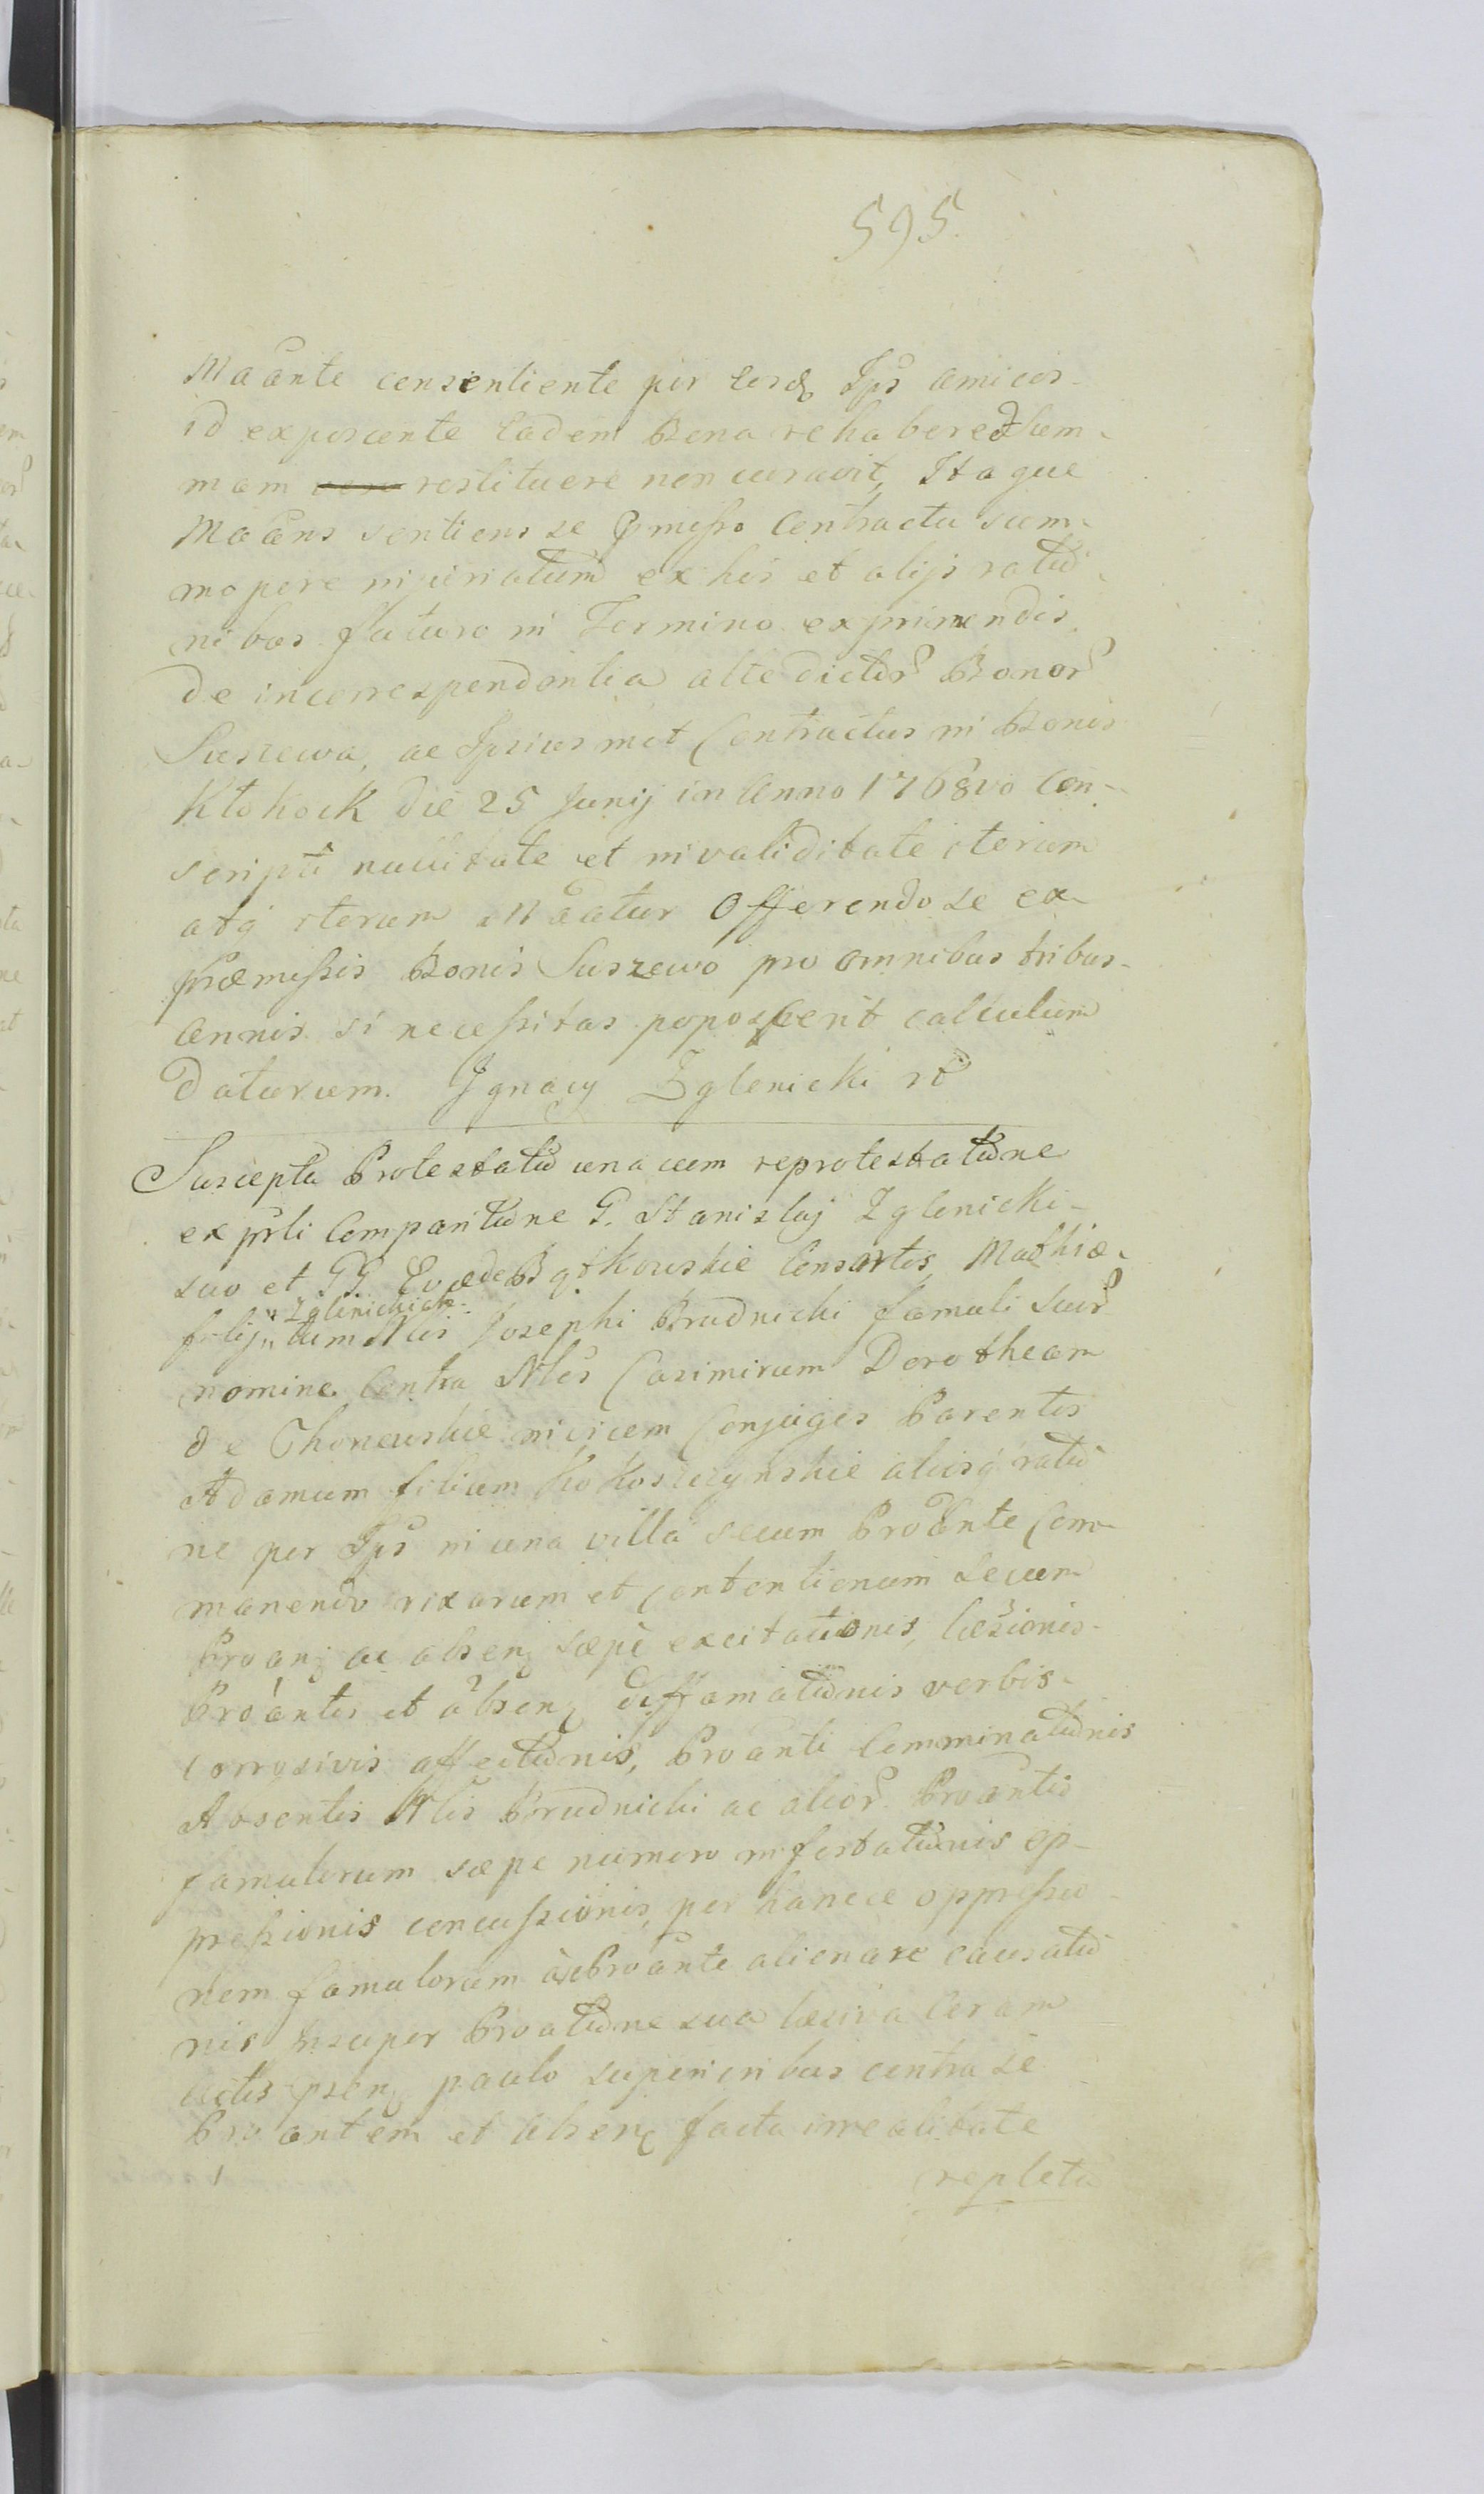 595.
Maante consentiente per eosd. Ips amicos
id exposcente eadem Bona rehabere et Sum-
mam restituere non curavit, Itaque
Maans sentiens se pmisso Contractu sum-
mopere injuriatum ex his et alijs ratio-
nibus futuro in Termino exprimendis
de incorrespondentia alte dictor Bonor
Suszewa, ac Ipsiusmet Contractus in Bonis
Kłokock die 25 Junij in Anno 1768vo con-
scripti nullitate et invaliditate iterum
atq iterum Maatur Offerendo se ex
præmissis Bonis Suszewo pro omnibus tribus
Annis si necessitas poposcerit calculum
daturum. Ignacy Zglenicki
Suscepta Protestatio una cum reprotestatione
ex prli Comparitione G. Stanislaj Zglenicki
suo et GG. Evæ de Bątkowskie Consortis, Mathiæ
filij " Zglinickich "
tum Nlis Josephi Brudnicki famuli suor
nomine Contra Nles Casimirum Dorotheam
de Chonewskie invicem Conjuges Parentes
Adamum filium Kokoszczynskie aliasq ratio
ne per Ips in una villa secum Proante Com-
manendo rixarum et Contentionum secum
Proan ac absen sæpe excitationis, læsionis
Proantis et absen deffamationis verbis
corrosivis affectionis, Proanti Comminationis
Absentis Nlis Brudnicki ac alior Proantis
famulorum sæpe numero infestationis op-
pressionis concussionis, per hancce oppressio
nem famulorum à se Proante alienare causatio
nis insuper Proatione sua læsiva Coram
Actis psen paulo superioribus contra se
Proantem et absen facta irrealitate
repleta